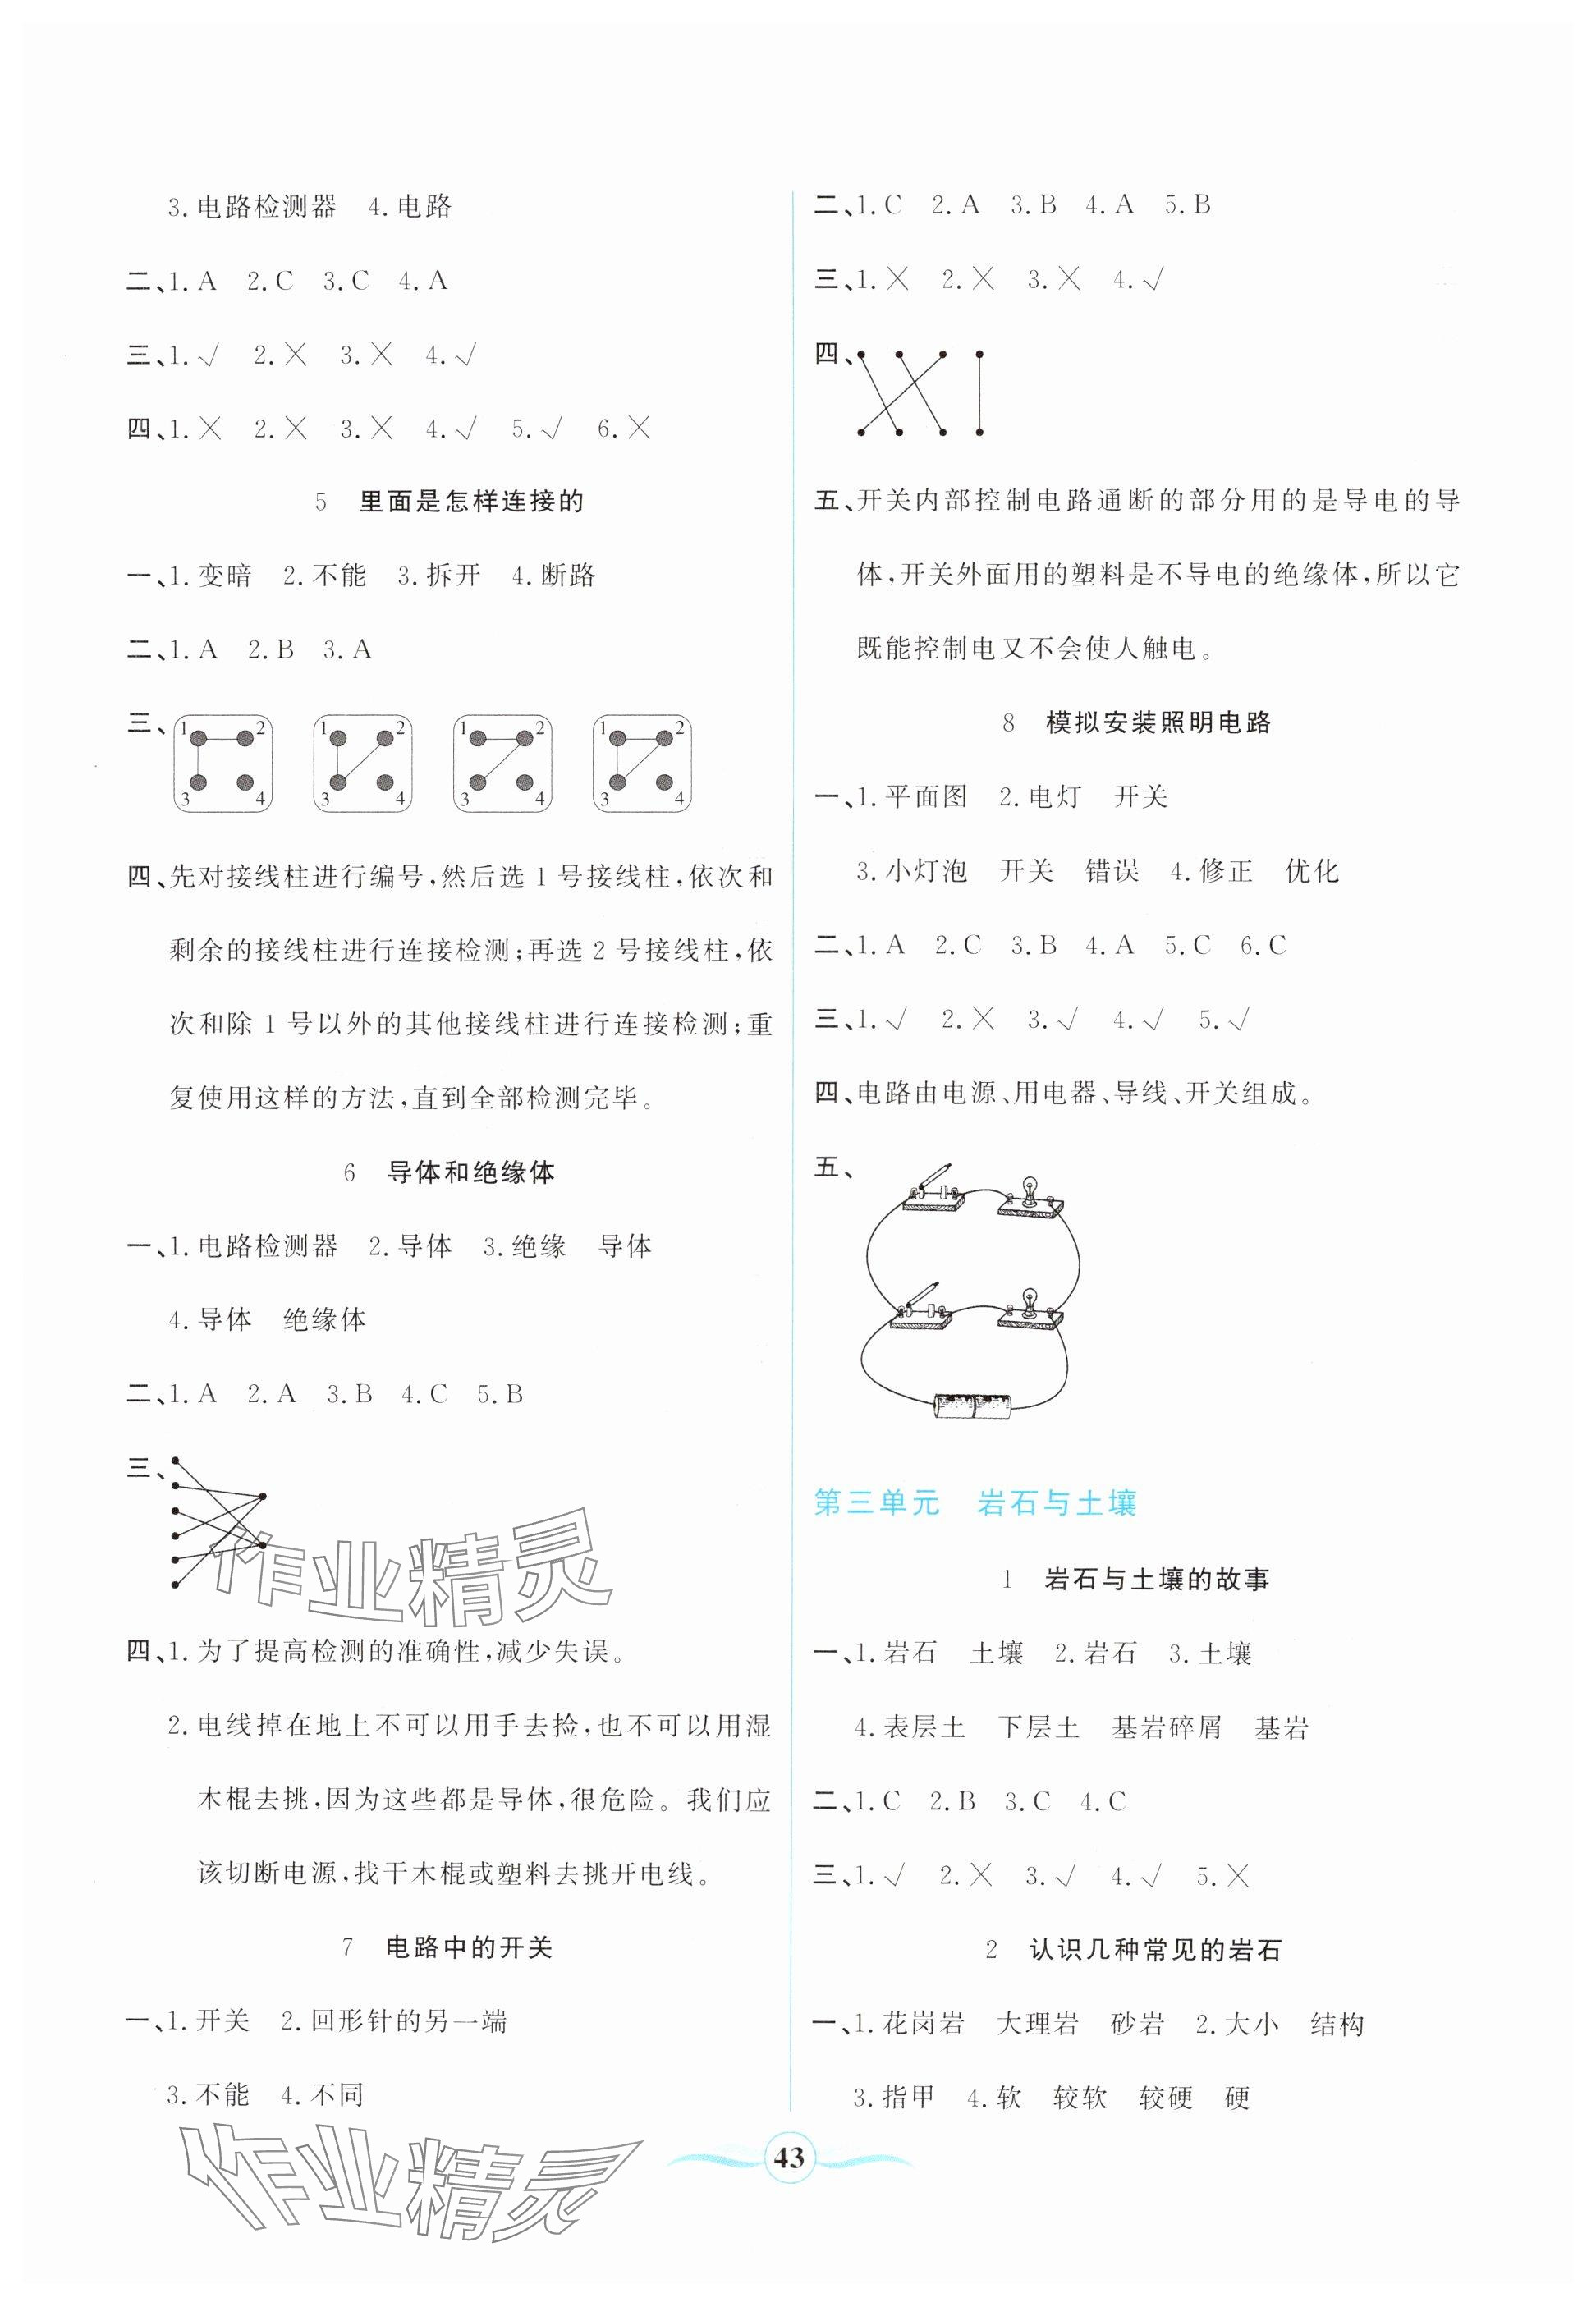 3.电路检测器 4.电路
二、1.A 2.C 3.C 4.A
三、1.√ 2.╳ 3.╳ 4.√
四、1.╳ 2.╳ 3.╳ 4.√ 5.√ 6.╳
5 里面是怎样连接的
一、1.变暗 2.不能 3.拆开 4.断路
二、1.A 2.B 3.A
三、
1 2 1 2 1 2 1 2
3 4 3 4 3 4 3 4
四、先对接线柱进行编号,然后选1号接线柱,依次和
剩余的接线柱进行连接检测;再选2号接线柱,依
次和除1号以外的其他接线柱进行连接检测;重
复使用这样的方法,直到全部检测完毕。
6 导体和绝缘体
一、1.电路检测器 2.导体 3.绝缘 导体
4.导体 绝缘体
二、1.A 2.A 3.B 4.C 5.B
三、
作业精灵
四、1.为了提高检测的准确性,减少失误。
2.电线掉在地上不可以用手去捡,也不可以用湿
木棍去挑,因为这些都是导体,很危险。我们应
该切断电源,找干木棍或塑料去挑开电线。
7 电路中的开关
一、1.开关 2.回形针的另一端
3.不能 4.不同
作业精灵
二、1.C 2.A 3.B 4.A 5.B
三、1.╳ 2.╳ 3.╳ 4.√
四、
五、开关内部控制电路通断的部分用的是导电的导
体,开关外面用的塑料是不导电的绝缘体,所以它
既能控制电又不会使人触电。
8 模拟安装照明电路
一、1.平面图 2.电灯 开关
3.小灯泡 开关 错误 4.修正 优化
二、1.A 2.C 3.B 4.A 5.C 6.C
三、1.√ 2.╳ 3.√ 4.√ 5.√
四、电路由电源、用电器、导线、开关组成。
五、
第三单元 岩石与土壤
1 岩石与土壤的故事
一、1.岩石 土壤 2.岩石 3.土壤
4.表层土 下层土 基岩碎屑 基岩
二、1.C 2.B 3.C 4.C
三、1.√ 2.╳ 3.√ 4.√ 5.╳
2 认识几种常见的岩石
一、1.花岗岩 大理岩 砂岩 2.大小 结构
3.指甲 4.软 较软 较硬 硬
43